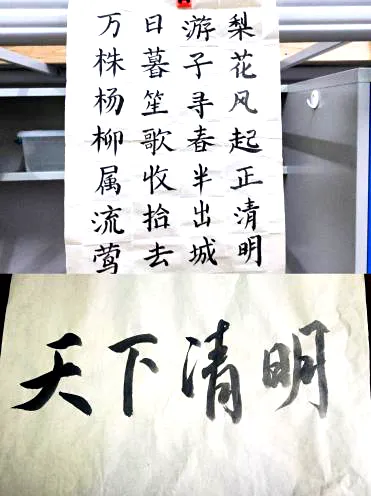 梨花风起正清明
游子寻春半出城
日暮笙歌收拾去
万株杨柳属流莺
天下清明